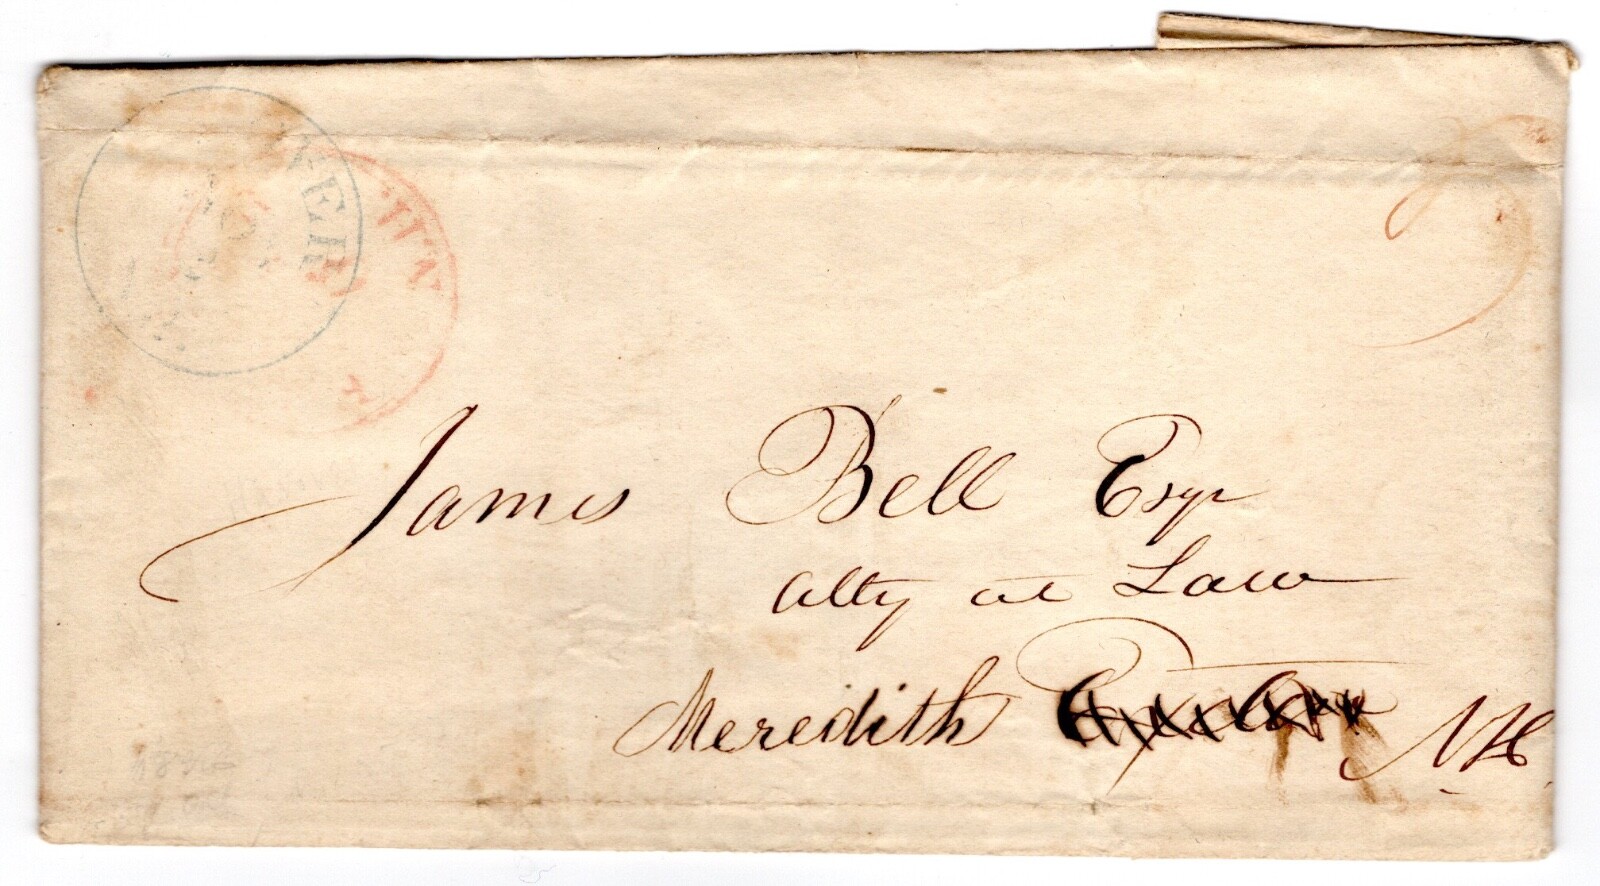 VER
James Bell Esqr
Atty at Law
Meredith NH